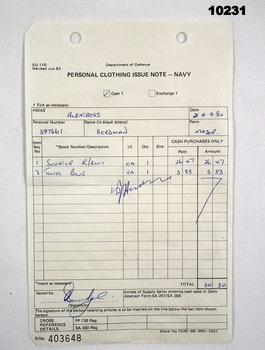 10231
SG 110
Revised Jun 82
Department of Defence
PERSONAL CLOTHING ISSUE NOTE – NAVY
Cash 1
Exchange 1
1 Tick as necessary
HMAS
ALBATROSS
Date
Personal Number
Name (in block letters)
Rank
897661
HERDMAN
MAJOR
Item Seq No
*Stock Number/Description
UI
Qty
CASH PURCHASES ONLY
Rate
Amount
1
EA
1
26 47
26 47
2
EA
1
3 83
3 83
*Insert as necessary
TOTAL
30 30
Issued by
(Signature)
Initials of Supply Sailor entering cash sales in Daily Abstract Form SA 267/SA 268
The signature of the person receiving articles is to be inserted on the line below the last item shown
CROSS REFERENCE DETAILS
PP 135 Reg
SA 390 Reg
S/No 403648
Stock No